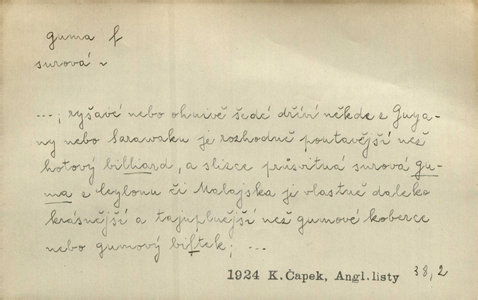 guma f
surová ~
...; ryšavé nebo ohnivě šedé dříví někde z Guya-
ny nebo Sarawaku je rozhodně poutavější než
hotový billiard, a slizce průsvitná surová gu-
ma z Ceylonu či Malajska je vlastně daleko
krásnější a tajuplnější než gumové koberce
nebo gumový biftek; ...
1924 K. Čapek, Angl. listy 38,2